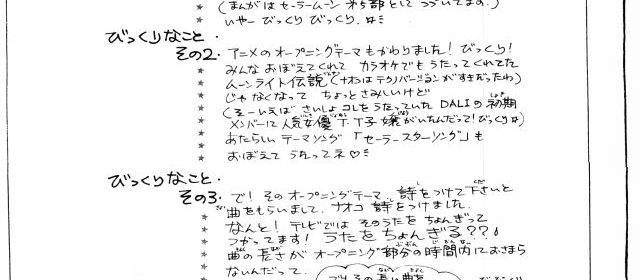 (まんがは セーラームーン 第5部として つづいてます。)
いやー びっくり びっくり。
びっくりなこと
その2. アニメのオープニングテーマもかわりました! びっくり!
みんな おぼえてくれて カラオケでも うたってくれてた
ムーンライト伝説 (ナオコはテクノバージョンがすきだったわ)
じゃ なくなって ちょっと さみしいけど
(そーいえば さいしょ コレをうたっていた DALIの初期
メンバーに人気女優T・T子嬢がいたんだって! びっくり)
あたらしい テーマソング 「セーラースターソング」も
おぼえて うたってネ♡
びっくりなこと
その3. で! そのオープニングテーマ、詩をつけて下さいと
曲をもらいまして、ナオコ 詩をつけました。
なんと! テレビでは そのうたを ちょんぎって
つかってます! うたをちょんぎる???
曲の長さが オープニング部分の時間内におさまら
ないんだって。
で! その長い曲を